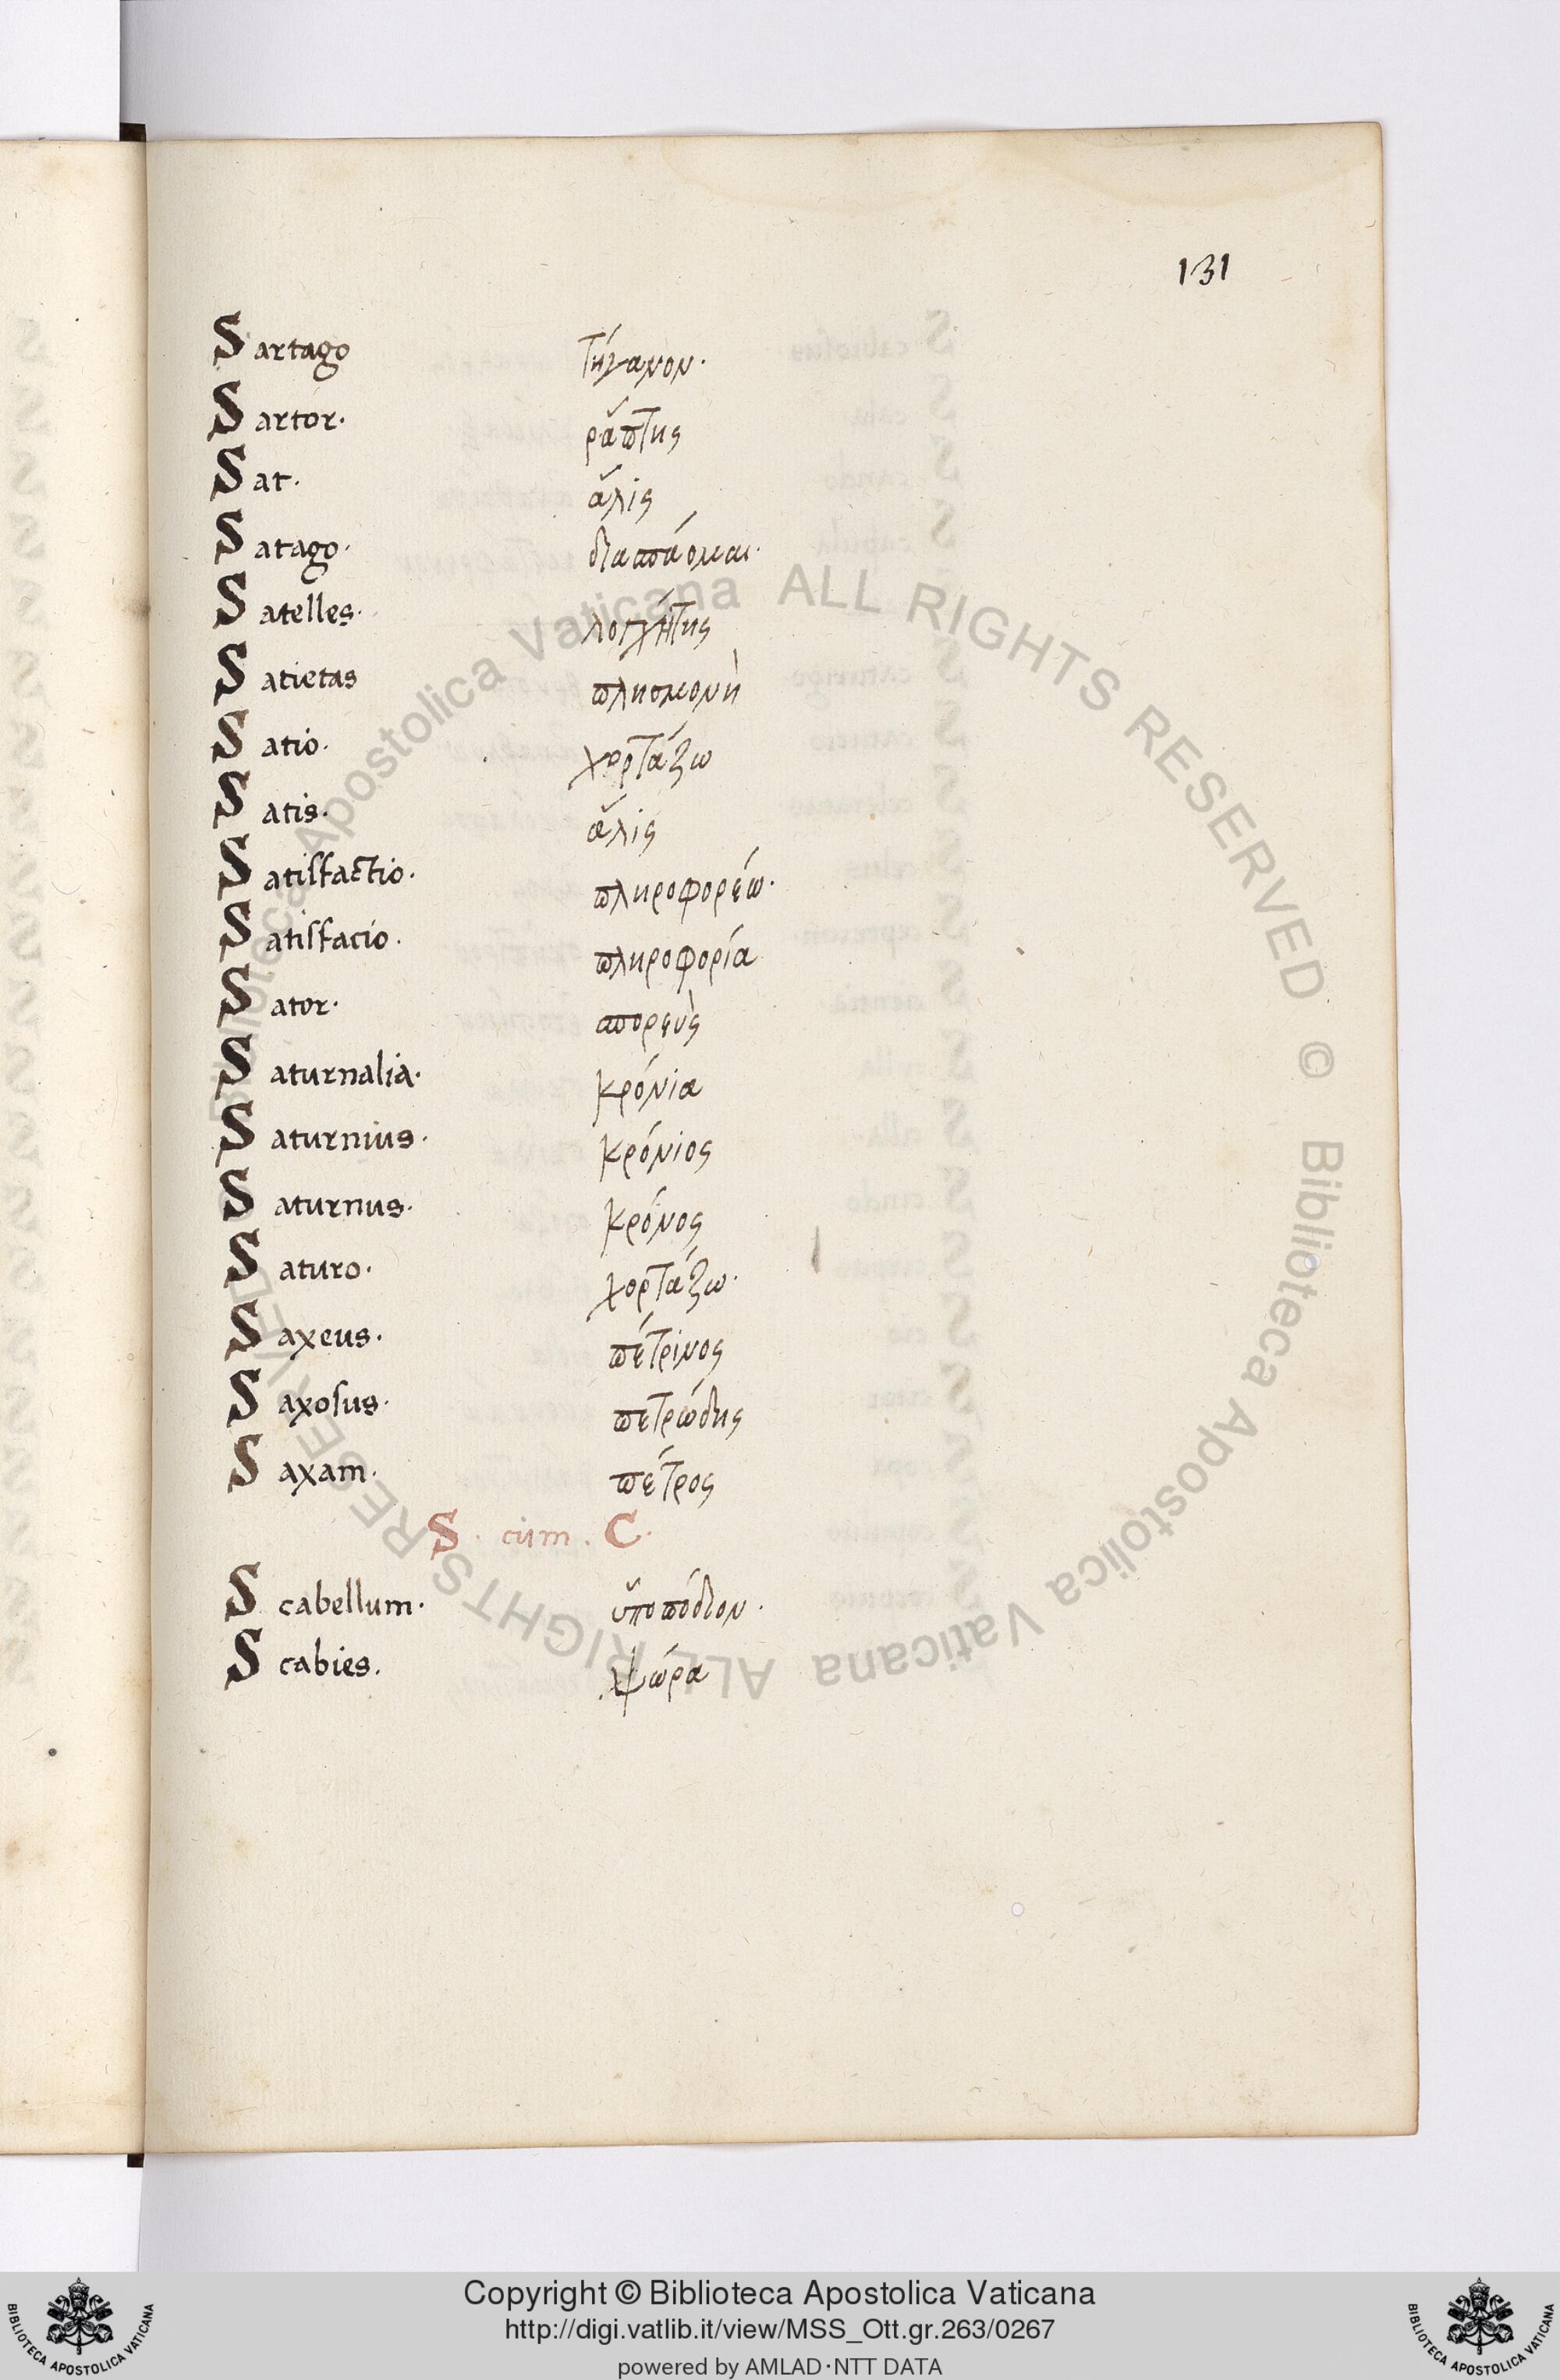 131
Sartago τήγανον.
Sartor. ράπτης
Sat. ἅλις
Satago. διασπάομαι.
Satelles. λογχήτης
Satietas πλησμονὴ
Satio. χορτάζω
Satis. ἅλις
Satisfactio. πληροφορέω.
Satisfacio. πληροφορία
Sator. σπορεὺς
Saturnalia. κρόνια
Saturnius. κρόνιος
Saturnus. κρόνος
Saturo. χορτάζω.
Saxeus. πέτρινος
Saxosus. πετρώδης
Saxam. πέτρος
S. cum. C.
Scabellum. ὑποπόδιον.
Scabies. ψώρα
Biblioteca Apostolica Vaticana ALL RIGHTS RESERVED © Biblioteca Apostolica Vaticana ALL RIGHTS RESERVED ©
Copyright © Biblioteca Apostolica Vaticana
http://digi.vatlib.it/view/MSS_Ott.gr.263/0267
powered by AMLAD·NTT DATA
BIBLIOTECA APOSTOLICA VATICANA
BIBLIOTECA APOSTOLICA VATICANA